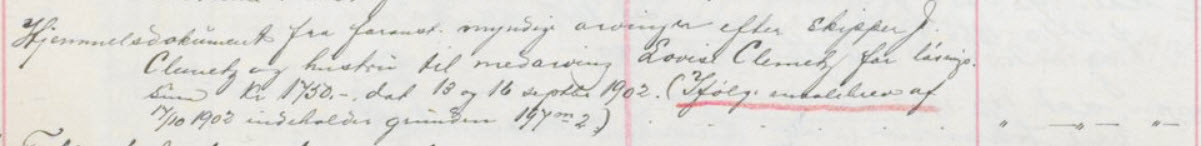 Hjemmelsdokument fra foranst. myndige arvinger efter Skipper J.
Clemetz og hustru til medarving Lovise Clemetz for løsnings-
sum Kr 1750.-. dat 13 og 16 septbr 1902. (Ifølge maalebrev af
7/10 1902 indeholder grunden 197 m 2.)
" —"— "—